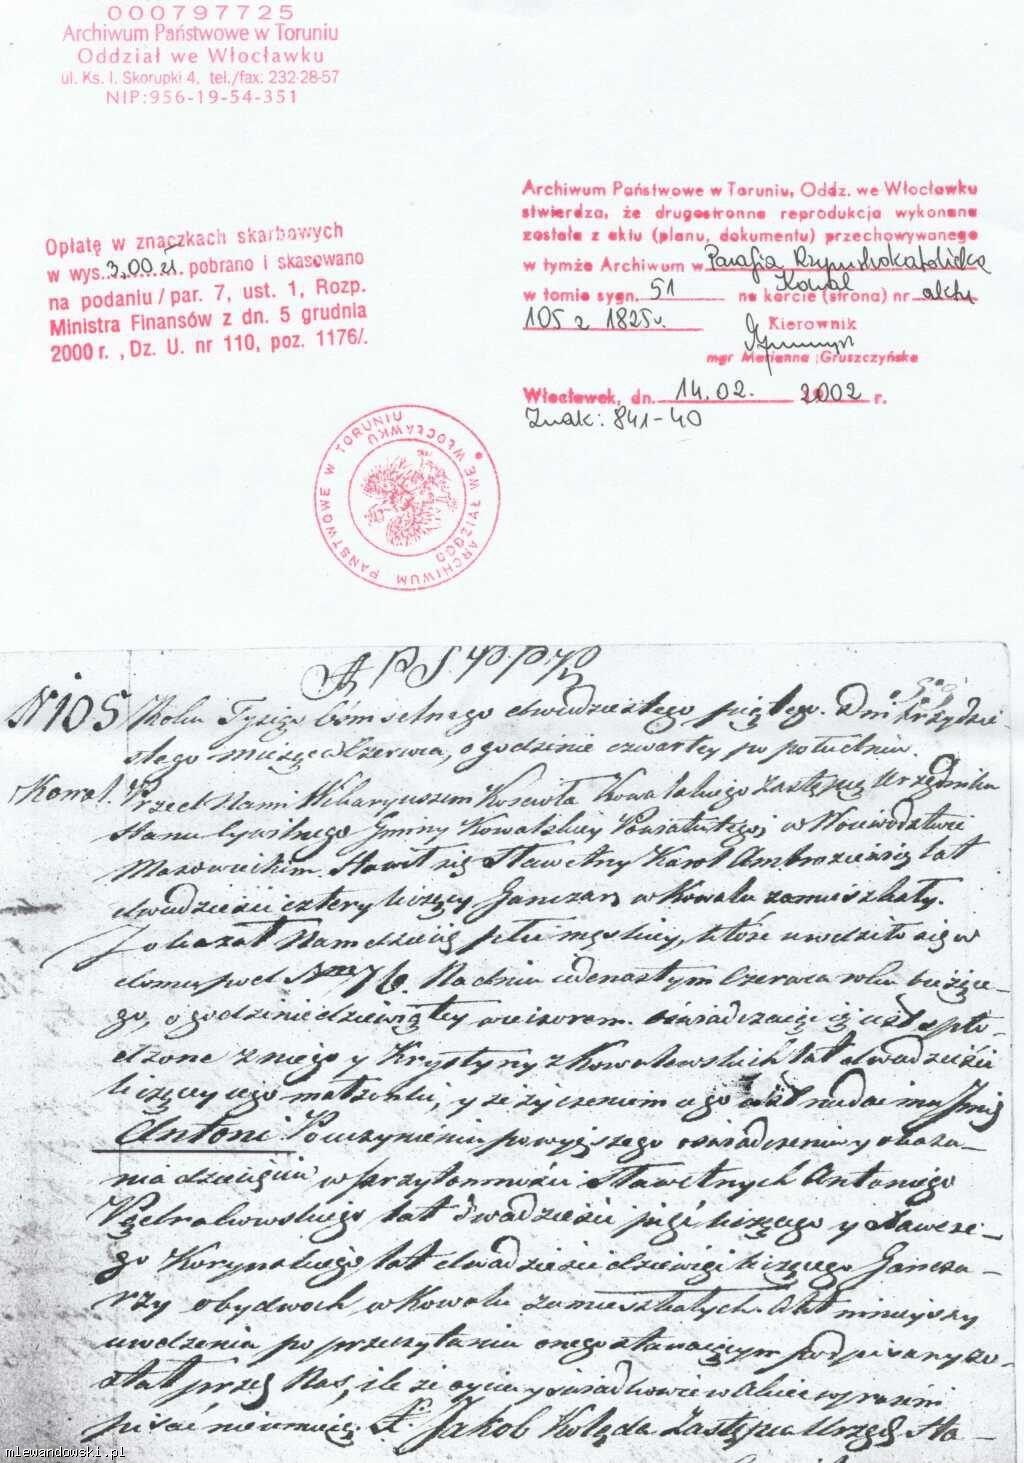 000797725
Archiwum Państwowe w Toruniu
Oddział we Włocławku
ul. Ks. I. Skorupki 4, tel./fax: 232-28-57
NIP:956-19-54-351
Opłatę w znaczkach skarbowych
w wys. 3,00 zł pobrano i skasowano
na podaniu / par. 7, ust. 1, Rozp.
Ministra Finansów z dn. 5 grudnia
2000 r. , Dz. U. nr 110, poz. 1176/.
Archiwum Państwowe w Toruniu, Oddz. we Włocławku
stwierdza, że drugostronna reprodukcja wykonana
została z aktu (planu, dokumentu) przechowywanego
w tymże Archiwum w Parafia Rzymskokatolicka
Kowal
w tomie sygn. 51 na karcie (strona) nr aktu
105 z 1825 r.
Kierownik
mgr Marianna Gruszczyńska
Włocławek, dn. 14.02. 2002 r.
Znak: 841-40
ARCHIWUM PAŃSTWOWE W TORUNIU
ODDZIAŁ WE WŁOCŁAWKU
N 105 Roku Tysiąc ośmsetnego dwudziestego piątego. Dnia trzydzie-
stego miesiąca Czerwca, o godzinie czwartey po południu.
Kowal. Przed Nami Wikaryuszem Kościoła Kowalskiego Zastępcą Urzędnika
Stanu Cywilnego Gminy Kowalskiey Powiatu tegoż w Woiewództwie
Mazowieckim. Stawił się Sławetny Karol Ambroziewicz lat
dwadzieścia cztery liczący Garczarz w Kowalu zamieszkały.
I okazał Nam dziecię płci męskiey, które urodziło się w
domu pod Nrem 76. Na dniu iedenastym Czerwca roku bieżące-
go, o godzinie dziewiątey wieczorem. oświadczaiąc iż iest spło-
dzone z niego y Krystyny z Kowalewskich lat dwadzieścia
liczącey iego małżonki, y że życzeniem iego iest nadać mu Imię
Antoni. Po uczynieniu powyższego oświadczenia y okaza-
nia dziecięcia w przytomności Sławetnych Antoniego
lat dwadzieścia pięć liczącego y Xawere-
go lat dwadzieścia dziewięć liczącego Garcza-
rzy obydwoch w Kowalu zamieszkałych. Akt ninieyszy
urodzenia po przeczytaniu onego stawaiącym podpisany zo-
stał przez Nas, ile że oyciec y świadkowie w Akcie wyrażeni
pisać nie umieią. X. Jakób Kolęda Zastępca Urzęd. Sta-
mlewandowski.pl